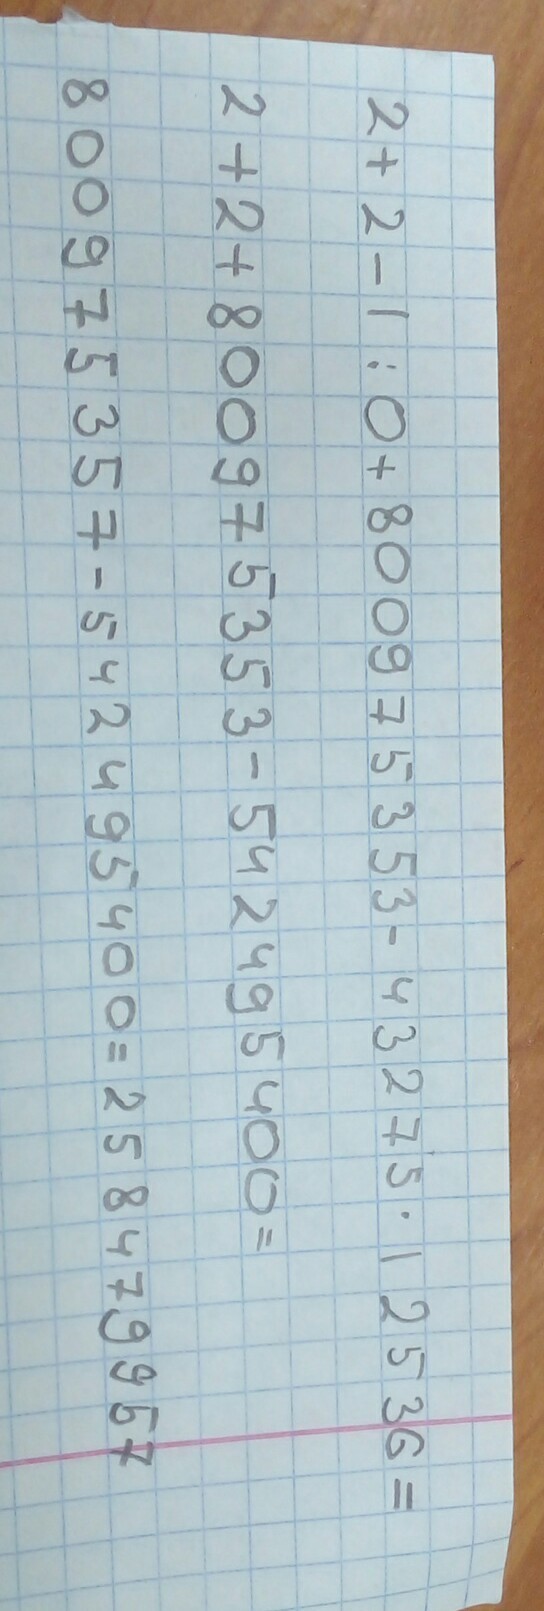 2+2-1:0+8009753​53-43275·12536=
2+2+800975353-542495400=
800975357-542495400=258479957